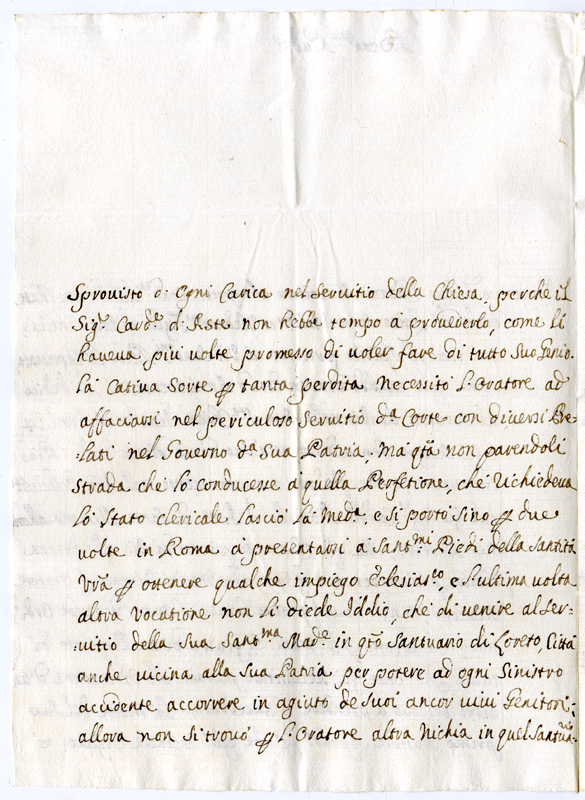 Sprovisto d: Ogni Carica nel Servitio della Chiesa, perche il
Sig.r Card.e d'Aste non hebbe tempo à provederlo, come li
haveva più volte promesso di voler fare di tutto Suo Genio.
La Cativa Sorte p tanta perdita necessitò l'Oratore ad
affaciarsi nel periculoso Servitio d.a Corte con diversi Pre
:lati nel Governo d.a Sua Patria. Ma q.ta non parendoli
Strada che lo conducesse à quella Perfetione, che richiedeva
lo Stato clericale lasciò la med.a, e si portò sino p due
volte in Roma à presentarsi a Sant.mi Piedi della Santità
Vrã p ottenere qualche impiego Ecclesias.co, e l'ultima volta
altra vocatione non li diede Iddio, che di venire al Ser-
:vitio della Sua Sant.ma Mad.e in q.to Santuario di Loreto, Città
anche vicina alla Sua Patria per potere ad ogni Sinistro
accidente accorrere in agiuto de Suoi ancor vivi Genitori;
allora non si trovò p l'Oratore altra Nichia in quel Santua.rio